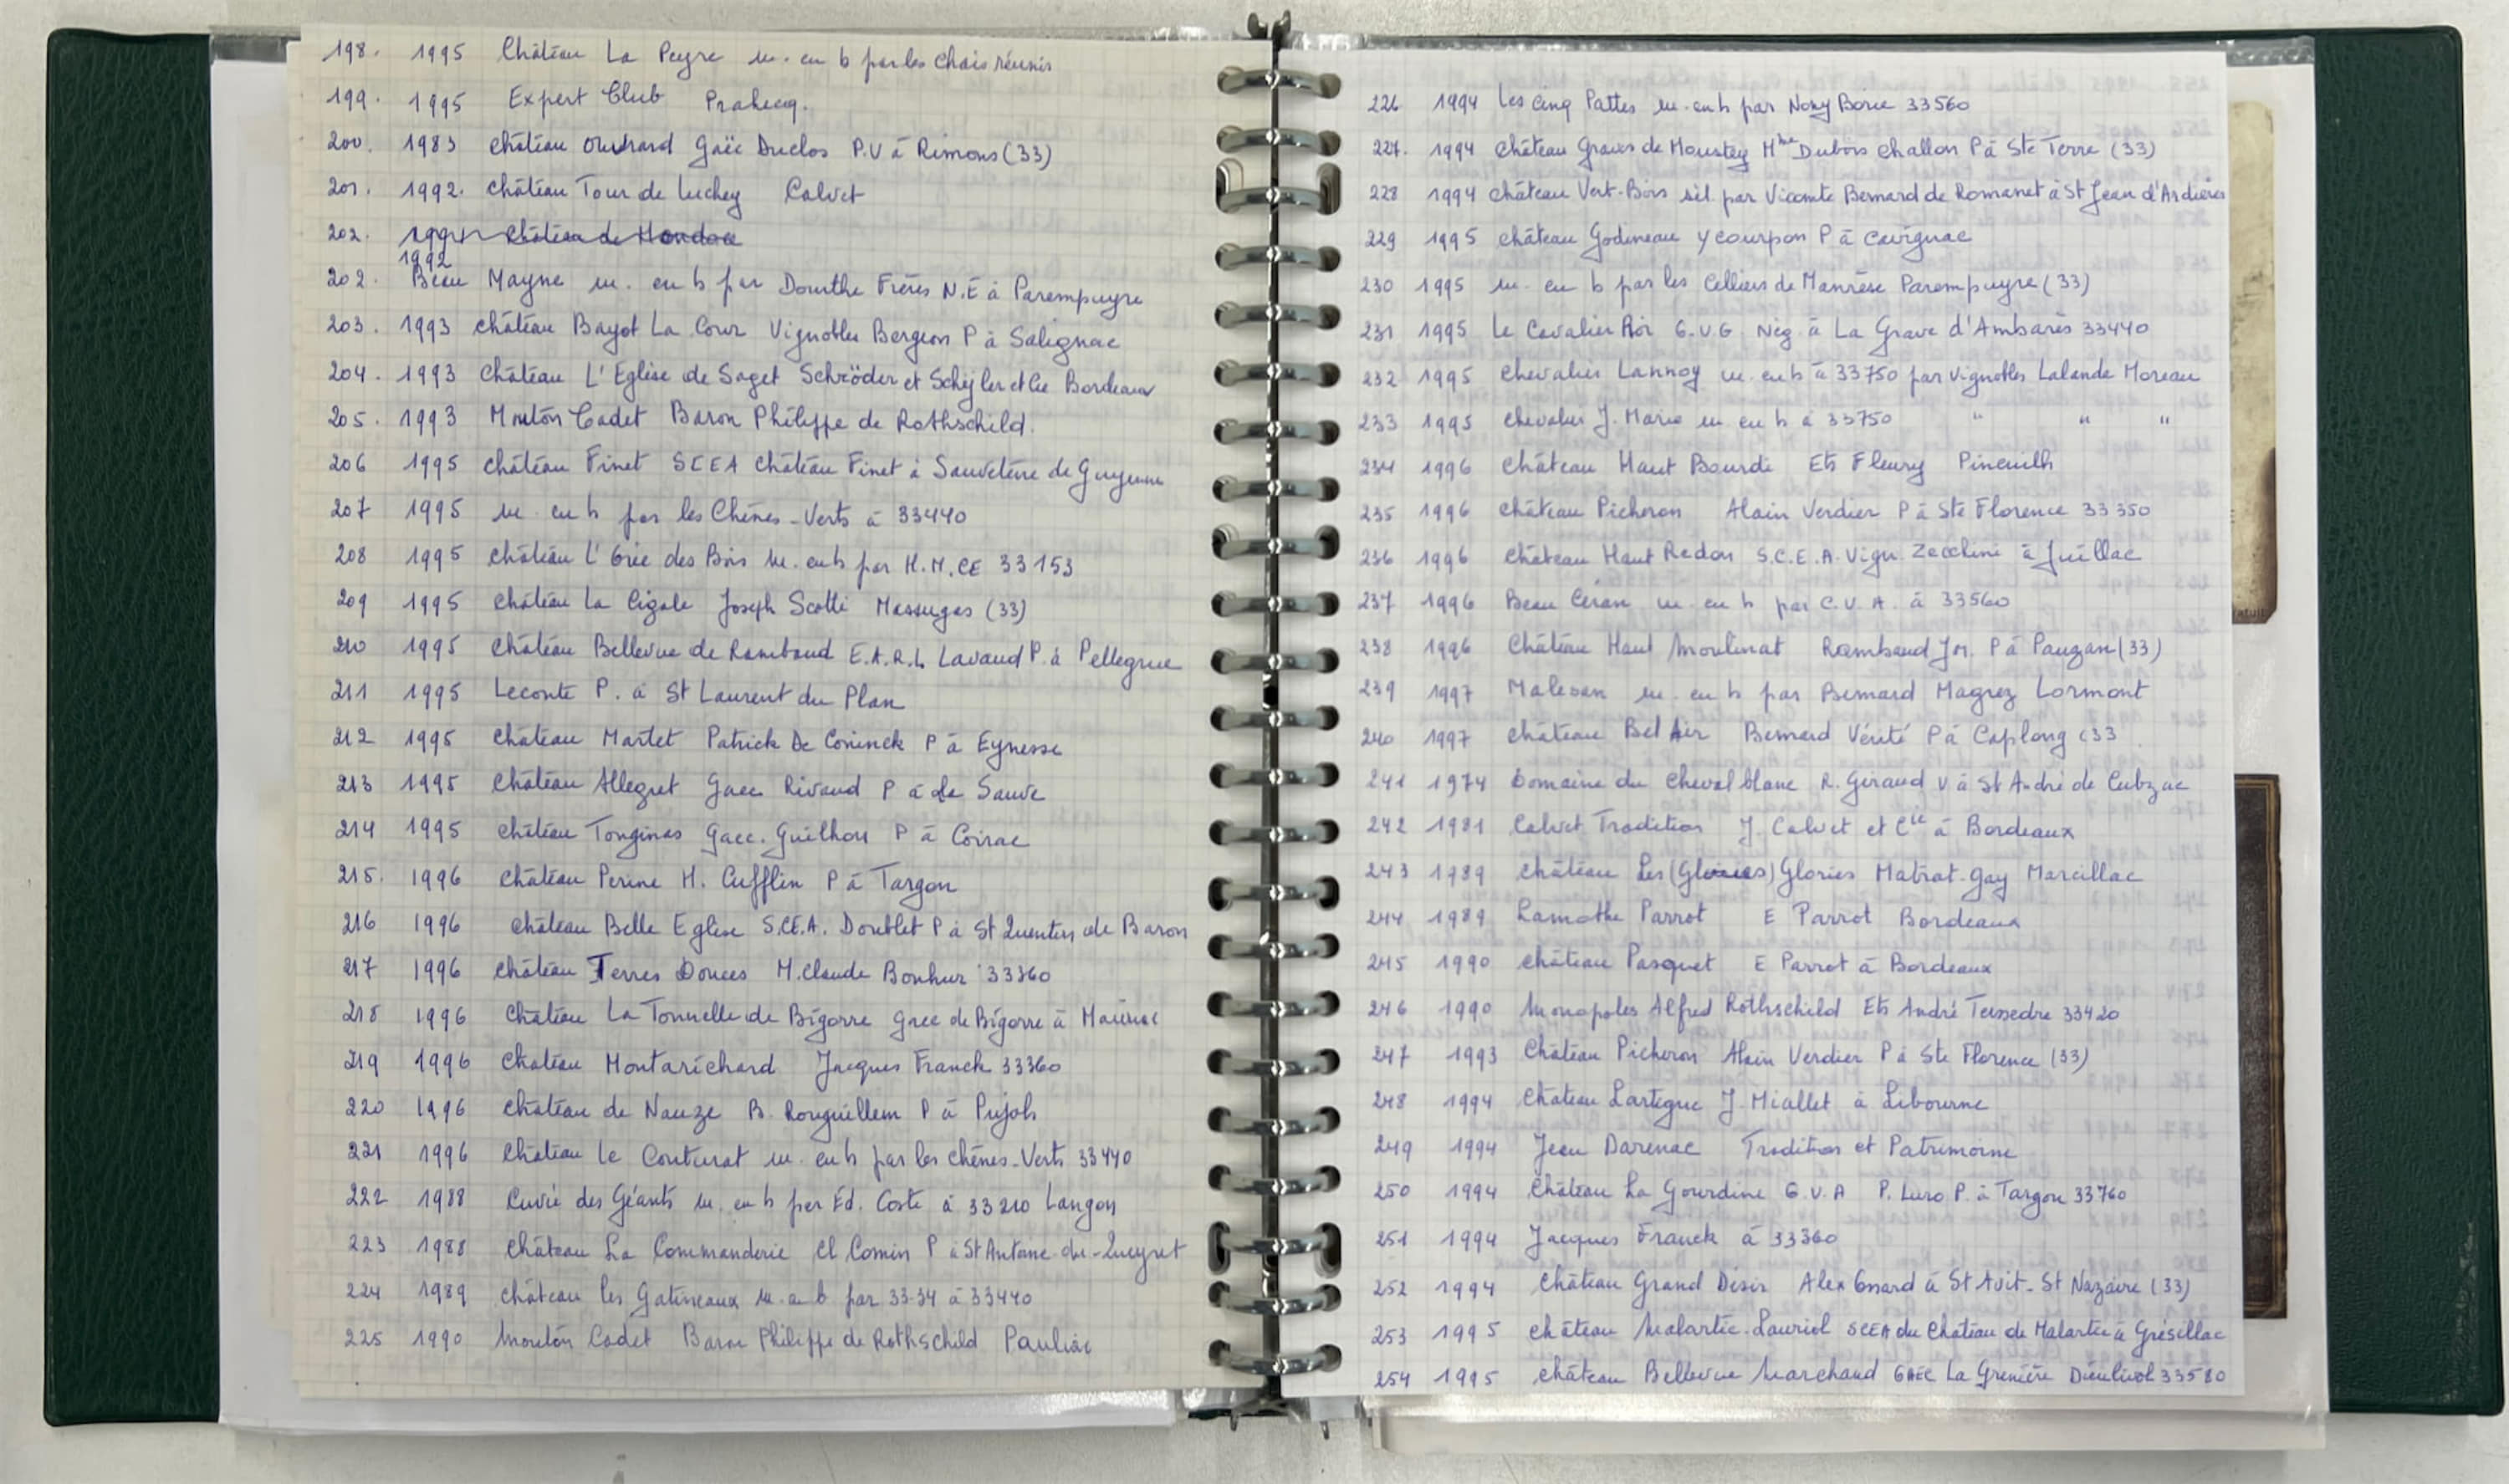 198. 1995 Château La Peyre m. en b par les Chais réunis
199. 1995 Expert Club Prahecq.
200. 1983 Château Ouvrard Gaëc Duclos P.V à Rimons (33)
201. 1992. Château Tour de Luchey Calvet
202. 1991 Château de
1992
202. Beau Mayne m. en b par Dourthe Frères N.E à Parempuyre
203. 1993 Château Bayot La Cour Vignobles Bergeon P à Salignac
204. 1993 Château L'Eglise de Saget Schröder et Schÿler et Cie Bordeaux
205. 1993 Mouton Cadet Baron Philippe de Rothschild.
206 1995 Château Finet SCEA Château Finet à Sauveterre de Guyenne
207 1995 m. en b par les Chênes-Verts à 33440
208 1995 Château L'Orée des Bois m. en b par H.M.CE 33153
209 1995 Château La Cigale Joseph Scotti Massugas (33)
210 1995 Château Bellevue de Rambaud E.A.R.L Lavaud P. à Pellegrue
211 1995 Leconte P. à St Laurent du Plan
212 1995 Château Martet Patrick De Coninck P à Eynesse
213 1995 Château Allegret Gaec Rivaud P à La Sauve
214 1995 Château Tonginas Gaec. Guilhon P à Coirac
215. 1996 Château Perine H. Cufflin P à Targon
216 1996 Château Belle Eglise S.C.E.A. Doublet P à St Quentin de Baron
217 1996 Château Terres Douces M. Claude Bonhur 33360
218 1996 Château La Tonnelle de Bigorre gaec de Bigorre à
219 1996 Château Montarichard Jacques Franck 33360
220 1996 Château de Nauze B. Rouquillem P à Pujols
221 1996 Château Le Couturat m. en b par les Chênes-Verts 33440
222 1988 Cuvée des Géants m. en b par Éd. Coste à 33210 Langon
223 1988 Château La Commanderie Cl Comin P à St Antoine-du-Queyret
224 1989 Château les Gatineaux m. en b par 33-34 à 33440
225 1990 Mouton Cadet Baron Philippe de Rothschild Pauliac
226 1994 Les Cinq Pattes m. en b par Nony Borie 33560
227. 1994 Château Graves de Moustey Mme Dubois Challon P à Ste Terre (33)
228 1994 Château Vert-Bois sél. par Vicomte Bernard de Romanet à St Jean d'Ardières
229 1995 Château Godineau Y Courpon P à Cavignac
230 1995 m. en b par les Celliers de Manrèse Parempuyre (33)
231 1995 Le Cavalier Roi G.V.G. Nég. à La Grave d'Ambarès 33440
232 1995 Chevalier Lannoy m. en b à 33750 par Vignobles Lalande Moreau
233 1995 Chevalier J. Marie m. en b à 33750 " " "
234 1996 Château Haut Bourdi Ets Fleury Pineuilh
235 1996 Château Picheron Alain Verdier P à Ste Florence 33350
236 1996 Château Haut Redon S.C.E.A. Vign. Zecchini à Juillac
237 1996 Beau Céran m. en b par C.V.A. à 33560
238 1996 Château Haut Moulinat Rambaud JM. P à Pauzan (33)
239 1997 Malesan m. en b par Bernard Magrez Lormont
240 1997 Château Bel Air Bernard Vérité P à Caplong (33
241 1974 Domaine du Cheval blanc R. Giraud V à St André de Cubzac
242 1981 Calvet Tradition J. Calvet et Cie à Bordeaux
243 1989 Château Les (Gloires) Glories Matrat-Gay Marcillac
244 1989 Lamothe Parrot E Parrot Bordeaux
245 1990 Château Pasquet E Parrot à Bordeaux
246 1990 Monopoles Alfred Rothschild Ets André Teissedre 33420
247 1993 Château Picheron Alain Verdier P à Ste Florence (33)
248 1994 Château Lartigue J. Miallet à Libourne
249 1994 Jean Darenac Tradition et Patrimoine
250 1994 Château La Gourdine G.V.A P. Luro P. à Targon 33760
251 1994 Jacques Franck à 33360
252 1994 Château Grand Désir Alex Onard à St Avit-St Nazaire (33)
253 1995 Château Malartic-Lauriol SCEA du Château de Malartic à Grésillac
254 1995 Château Bellevue Marchand GAEC La Grenière Dieulivol 33580